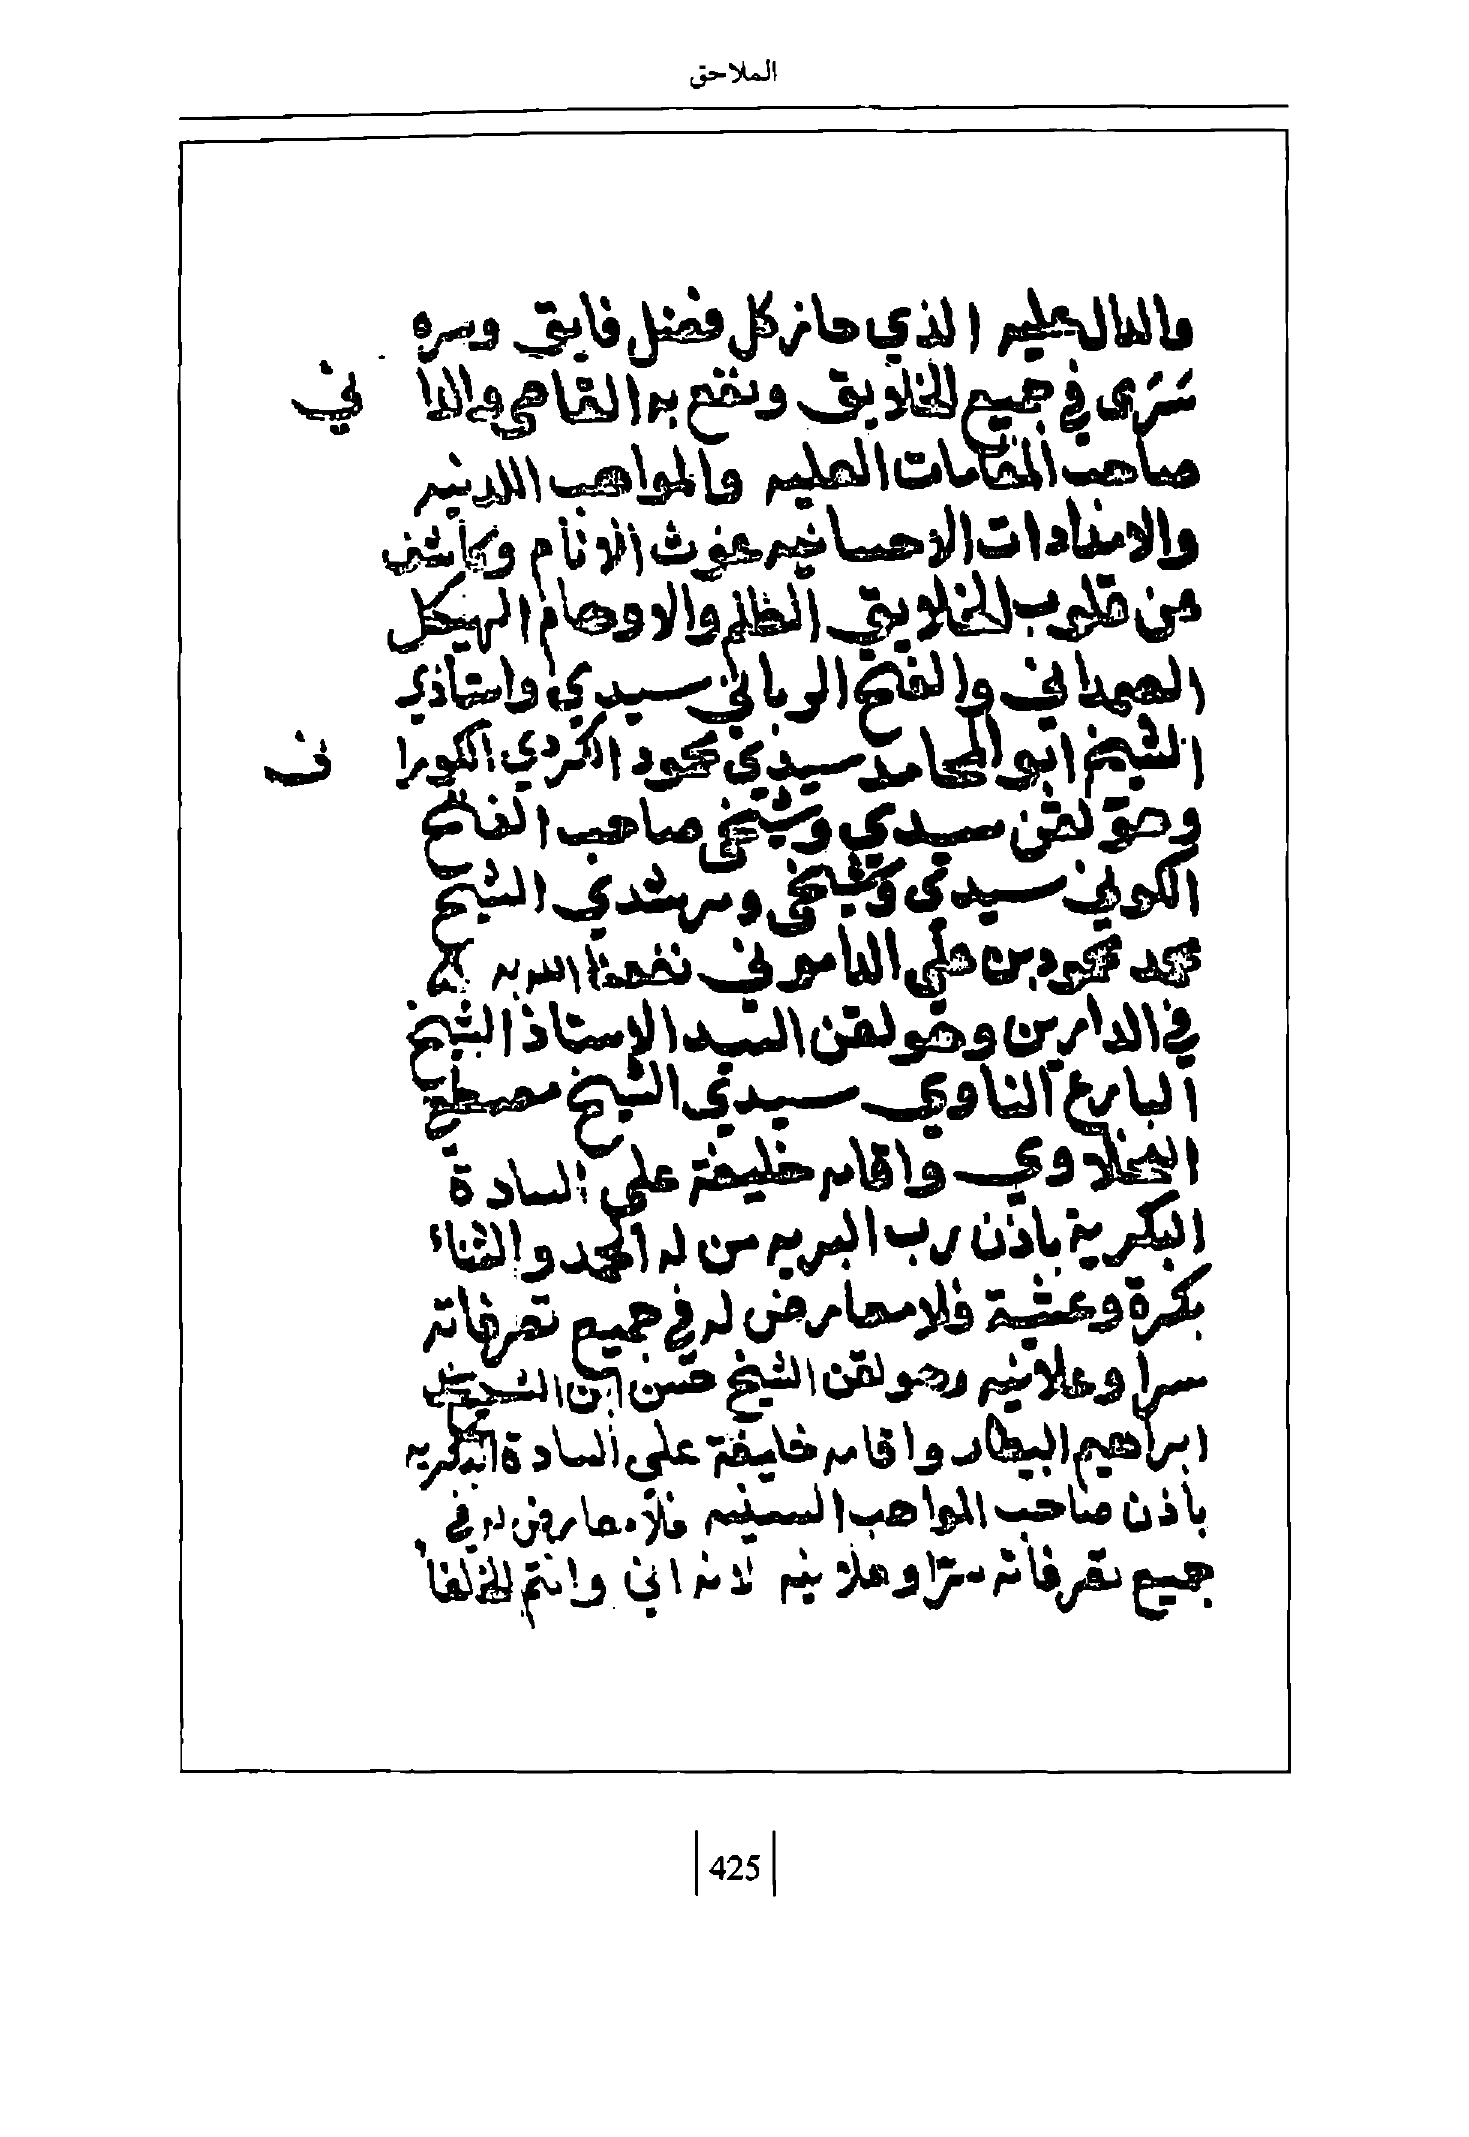 الملاحق
الذي حاز كل فضل فايق وسره
سرى في جميع الخلايق ونفع به القاصي والدا ني
صاحب المقامات العليه والمواهب اللدنيه
والامدادات الاحسانيه غوث الانام وكاشف
من قلوب الخلايق الظلم والاوهام الهيكل
الصمداني والفتح الرباني سيدي واستاذي
الشيخ ابو المحامد سيدي محمود الكردي الكورا ف
وهو لقن سيدي وشيخي صاحب الفتح
الكوني سيدي وشيخي ومرشدي الشيخ
محمد محمود بن علي الداموني نفعنا الله به
في الدارين وهو لقن السيد الاستاذ الشيخ
البارع الناوي سيدي الشيخ مصطفى
الخلاوي واقامه خليفة على السادة
البكرية باذن رب البريه من له الحمد والثناء
بكرة وعشية فلا معارض له في جميع تصرفاته
سرا وعلانيه وهو لقن الشيخ حسن ابن
ابراهيم البيطار واقامه خليفة على السادة البكريه
باذن صاحب المواهب السنيه فلا معارض له في
جميع تصرفاته سرا وعلانيه لانه اني وانتم الخلفا
425